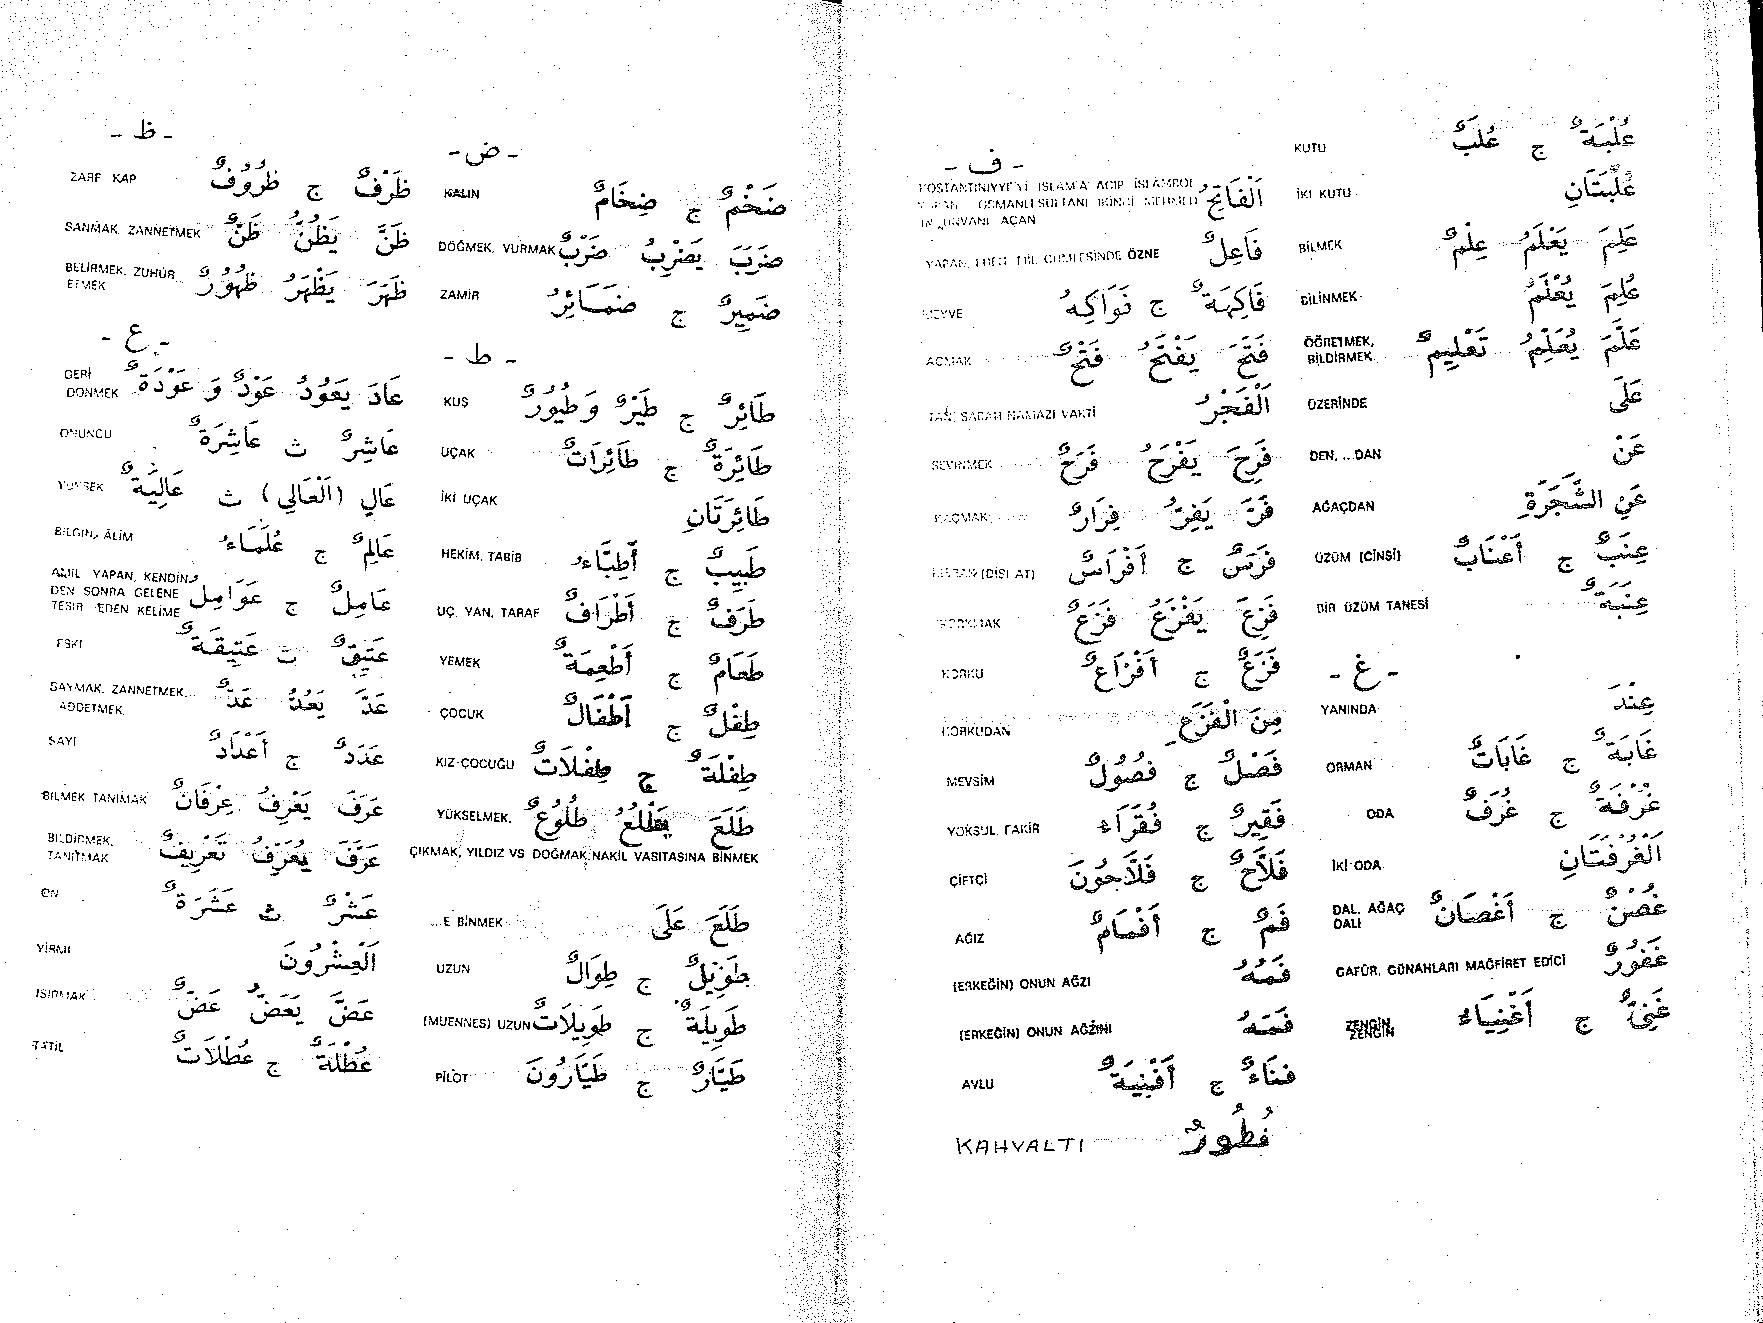 - ض -
ضَخْمٌ ج ضِخَامٌ KALIN
ضَرَبَ يَضْرِبُ ضَرْبٌ DÖĞMEK, VURMAK
ضَمِيرٌ ج ضَمَائِرُ ZAMİR
- ط -
طَائِرٌ ج طَيْرٌ وَ طُيُورٌ KUŞ
طَائِرَةٌ ج طَائِرَاتٌ UÇAK
طَائِرَتَانِ İKİ UÇAK
طَبِيبٌ ج أَطِبَّاءُ HEKİM, TABİB
طَرَفٌ ج أَطْرَافٌ UÇ, YAN, TARAF
طَعَامٌ ج أَطْعِمَةٌ YEMEK
طِفْلٌ ج أَطْفَالٌ ÇOCUK
طِفْلَةٌ ج طِفْلَاتٌ KIZ-ÇOCUĞU
طَلَعَ يَطْلُعُ طُلُوعٌ YÜKSELMEK,
ÇIKMAK, YILDIZ VS DOĞMAK,NAKİL VASITASINA BİNMEK
طَلَعَ عَلَى ...E BİNMEK
طَوِيلٌ ج طِوَالٌ UZUN
طَوِيلَةٌ ج طَوِيلَاتٌ (MUENNES) UZUN
طَيَّارٌ ج طَيَّارُونَ PİLOT
- ظ -
ظَرْفٌ ج ظُرُوفٌ ZARF KAP
ظَنَّ يَظُنُّ ظَنٌّ SANMAK, ZANNETMEK
ظَهَرَ يَظْهَرُ ظُهُورٌ BELİRMEK, ZUHÛR
ETMEK
- ع -
عَادَ يَعُودُ عَوْدٌ وَ عَوْدَةٌ GERİ
DÖNMEK
عَاشِرٌ ث عَاشِرَةٌ ONUNCU
عَالٍ (اَلْعَالِي) ث عَالِيَةٌ YÜKSEK
عَالِمٌ ج عُلَمَاءُ BİLGİN, ÂLİM
عَامِلٌ ج عَوَامِل AMİL YAPAN, KENDİN-
DEN SONRA GELENE
TESİR EDEN KELİME
عَتِيقٌ ث عَتِيقَةٌ ESKİ
عَدَّ يَعُدُّ عَدٌّ SAYMAK, ZANNETMEK
ADDETMEK,
عَدَدٌ ج أَعْدَادٌ SAYI
عَرَفَ يَعْرِفُ عِرْفَانٌ BİLMEK TANIMAK
عَرَّفَ يُعَرِّفُ تَعْرِيفٌ BİLDİRMEK,
TANITMAK
عَشْرٌ ث عَشَرَةٌ ON
اَلْعِشْرُونَ YİRMİ
عَضَّ يَعَضُّ عَضٌّ ISIRMAK
عُطْلَةٌ ج عُطْلَاتٌ TATİL
عُلْبَةٌ ج عُلَبٌ KUTU
عُلْبَتَانِ İKİ KUTU
عَلِمَ يَعْلَمُ عِلْمٌ BİLMEK
عُلِمَ يُعْلَمُ BİLİNMEK
عَلَّمَ يُعَلِّمُ تَعْلِيمٌ ÖĞRETMEK,
BİLDİRMEK
عَلَى ÜZERİNDE
عَنْ DEN, ...DAN
عَنِ الشَّجَرَةِ AĞAÇDAN
عِنَبٌ ج أَعْنَابٌ ÜZÜM (CİNSİ)
عِنَبَةٌ BİR ÜZÜM TANESİ
- غ -
عِنْدَ YANINDA
غَابَةٌ ج غَابَاتٌ ORMAN
غُرْفَةٌ ج غُرَفٌ ODA
اَلْغُرْفَتَانِ İKİ ODA
غُصْنٌ ج أَغْصَانٌ DAL, AĞAÇ
DALI
غَفُورٌ GAFÛR, GÜNAHLARI MAĞFİRET EDİCİ
غَنِيٌّ ج أَغْنِيَاءُ ZENGİN
- ف -
اَلْفَاتِحُ KOSTANTINIYYE'Yİ İSLAM'A AÇIP İSLAMBOL
OSMANLI SULTANI İKİNCİ MEHMED
AÇAN
فَاعِلٌ YAPAN, FİİL CÜMLESİNDE ÖZNE
فَاكِهَةٌ ج فَوَاكِهُ MEYVE
فَتَحَ يَفْتَحُ فَتْحٌ AÇMAK
اَلْفَجْرُ TAN, SABAH NAMAZI VAKTİ
فَرِحَ يَفْرَحُ فَرَحٌ SEVİNMEK
فَرَّ يَفِرُّ فِرَارٌ KAÇMAK
فَرَسٌ ج أَفْرَاسٌ KISRAK (DİŞİ AT)
فَزِعَ يَفْزَعُ فَزَعٌ KORKMAK
فَزَعٌ ج أَفْزَاعٌ KORKU
مِنَ الْفَزَعِ KORKUDAN
فَصْلٌ ج فُصُولٌ MEVSİM
فَقِيرٌ ج فُقَرَاءُ YOKSUL, FAKİR
فَلَّاحٌ ج فَلَّاحُونَ ÇİFTÇİ
فَمٌ ج أَفْمَامٌ AĞIZ
فَمُهُ (ERKEĞİN) ONUN AĞZI
فَمَهُ (ERKEĞİN) ONUN AĞZINI
فِنَاءٌ ج أَفْنِيَةٌ AVLU
فُطُورٌ KAHVALTI